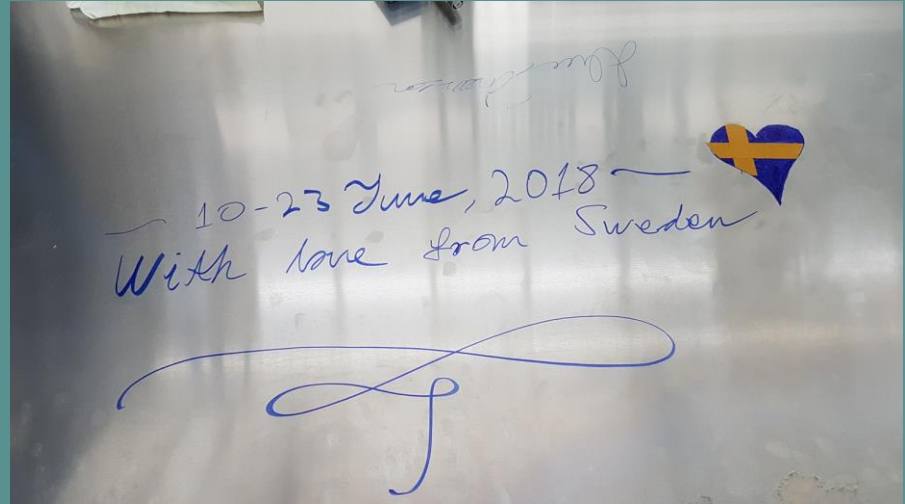 ~ 10-23 June, 2018 ~
With love from Sweden